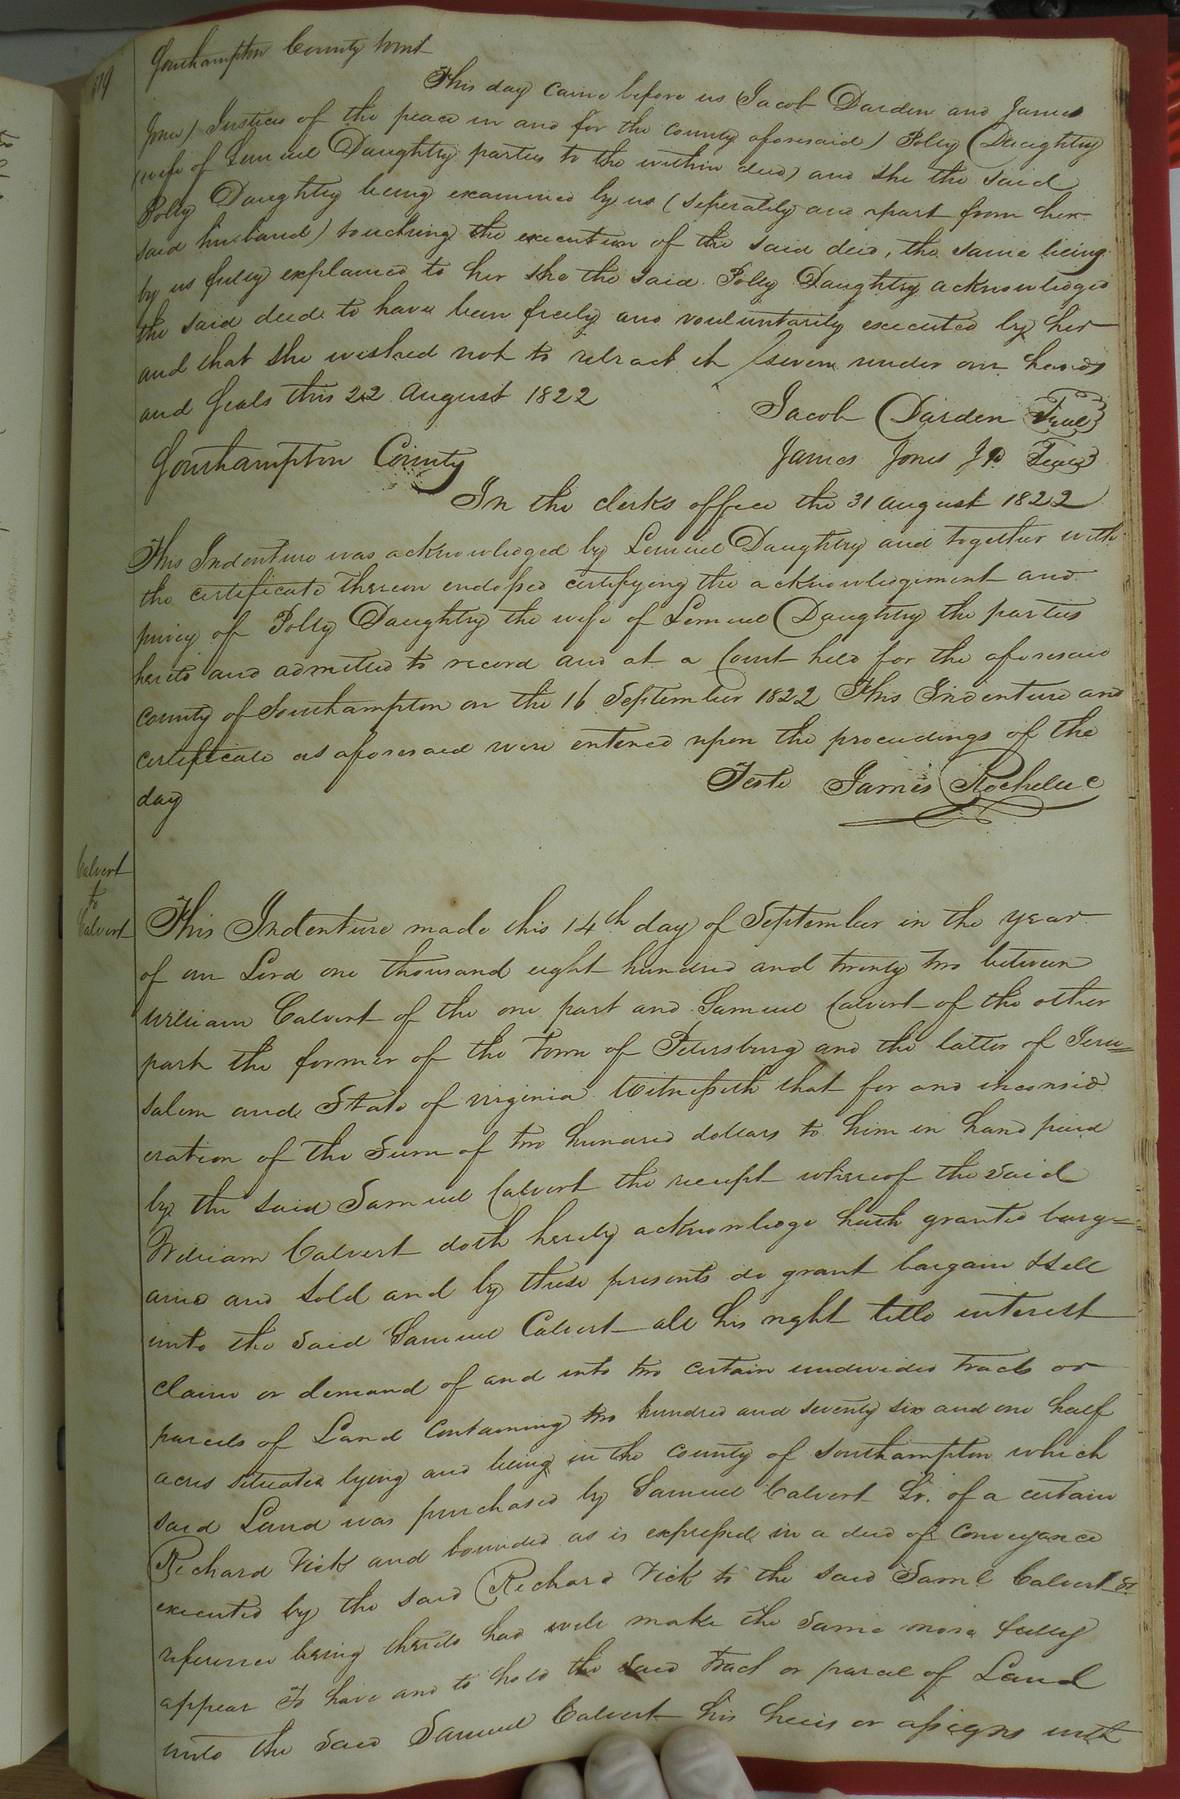 Southampton County towit
This day came before us Jacob Darden and James
Jones Justices of the peace in and for the county aforesaid Polly Daughtry
(wife of Lemuel Daughtry parties to the within deed) and she the said
Polly Daughtry being examined by us (seperately and apart from her
said husband) touching the execution of the said deed, the same being
by us fully explained to her she the said Polly Daughtry acknowledged
the said deed to have been freely and voluntarily executed by her
and that she wished not to retract it Given under our hands
and Seals this 22 August 1822
Jacob Darden Seal
James Jones JP Seal
Southampton County
In the clerks office the 31 august 1822
This Indenture was acknowledged by Lemuel Daughtry and together with
the certificate thereon endorsed certifying the acknowledgement and
privey of Polly Daughtry the wife of Lemuel Daughtry the parties
hereto and admitted to record and at a Court held for the aforesaid
county of Southampton on the 16 September 1822 This Indenture and
certificate as aforesaid were entered upon the proceedings of the
day
Teste James Rochelle C
Calvert
to
Calvert
This Indenture made this 14th day of September in the year
of our Lord one thousand eight hundred and twenty two between
William Calvert of the one part and Samuel Calvert of the other
part the former of the Town of Petersburg and the latter of Jeru=
salem and State of virginia Witnesseth that for and inconsid
eration of the Sum of two hundred dollars to him in hand paid
by the said Samuel Calvert the receipt whereof the said
William Calvert doth hereby acknowledge hath granted barg=
ained and sold and by these presents do grant bargain & sell
unto the said Samuel Calvert all his right title interest
claim or demand of and into two certain undivided tracts or
parcels of Land containing two hundred and seventy six and one half
acres situated lying and being in the county of Southampton which
said Land was purchased by Samuel Calvert Sr. of a certain
Richard Vick and bounded as is expressed in a deed of conveyance
executed by the said Richard Vick to the said Saml Calvert Sr.
reference being thereto had will make the same more fully
appear To have and to hold the said tract or parcel of Land
unto the said Samuel Calvert his heirs or assigns with